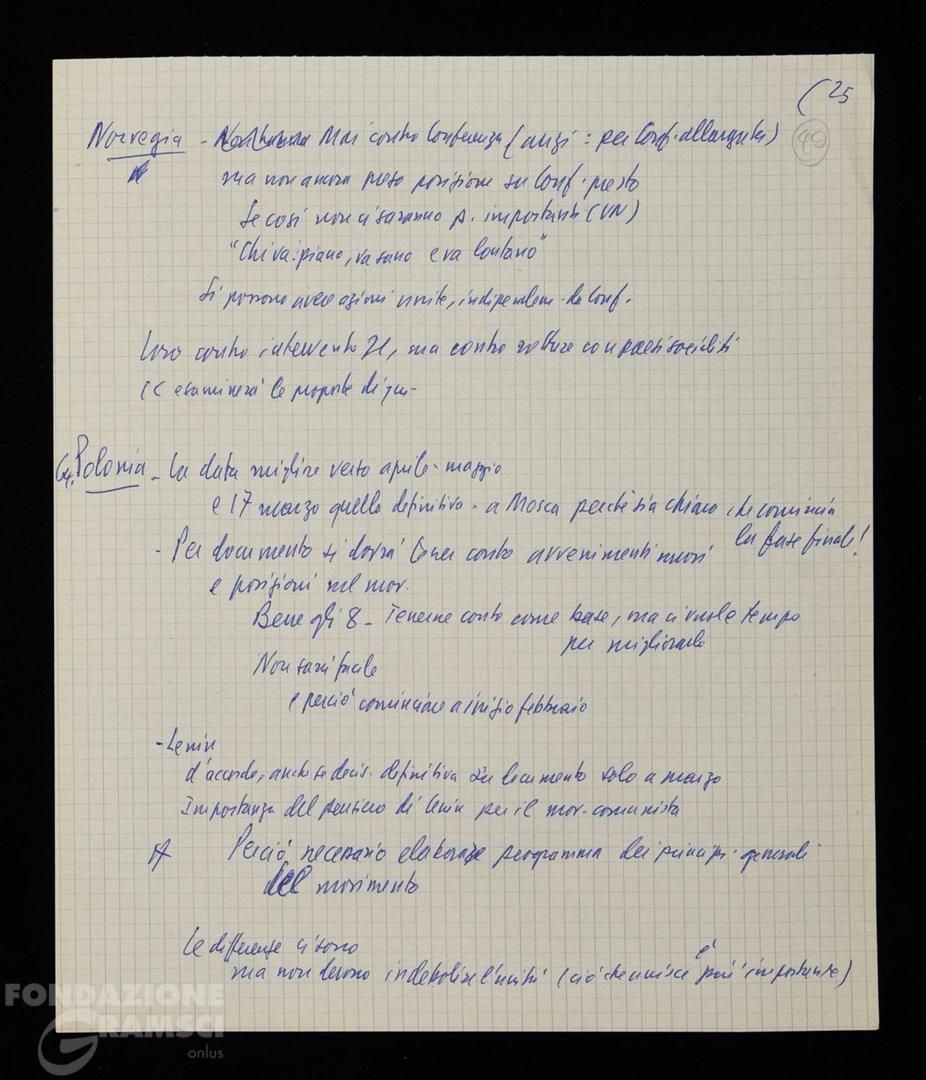 (25
40
Norvegia - Mai contro Conferenza (anzi: per Conf. allargata)
ma non ancora preso posizione su Conf. presto
Se così non ci saranno p. importanti (VN)
"Chi va piano, va sano e va lontano"
Si possono avere azioni unite, independen. da Conf.
Loro contro intervento 21, ma contro rotture con paesi socialisti
CC esaminerà le proposte di qui
Polonia - La data migliore verso aprile-maggio
e 17 marzo quella definitiva - a Mosca perché sia chiaro che comincia
la fase finale!
- Per documento si dovrà tener conto avvenimenti nuovi
e posizioni nel mov.
Bene gli 8 - Tenerne conto come base, ma ci vuole tempo
per migliorarlo
Non sarà facile
e perciò cominciare a inizio febbraio
- Lenin
d'accordo, anche se decis. definitiva su documento solo a marzo
Importanza del pensiero di Lenin per il mov. comunista
Perciò necessario elaborare programma dei principi generali
del movimento
Le differenze ci sono
ma non devono indebolire l'unità (ciò che unisce è più importante)
FONDAZIONE
GRAMSCI
onlus